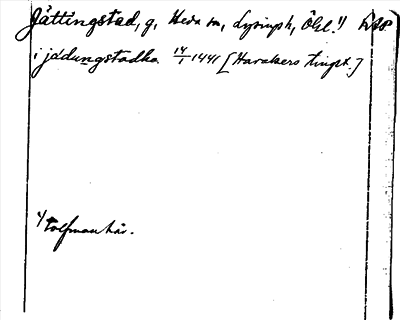 Jättingstad, g, Heda sn, Lysingsh, Ögl.1)
i jădungstadha 14/1 1441 [Harakers tingpl.]
1) Tolfman här.